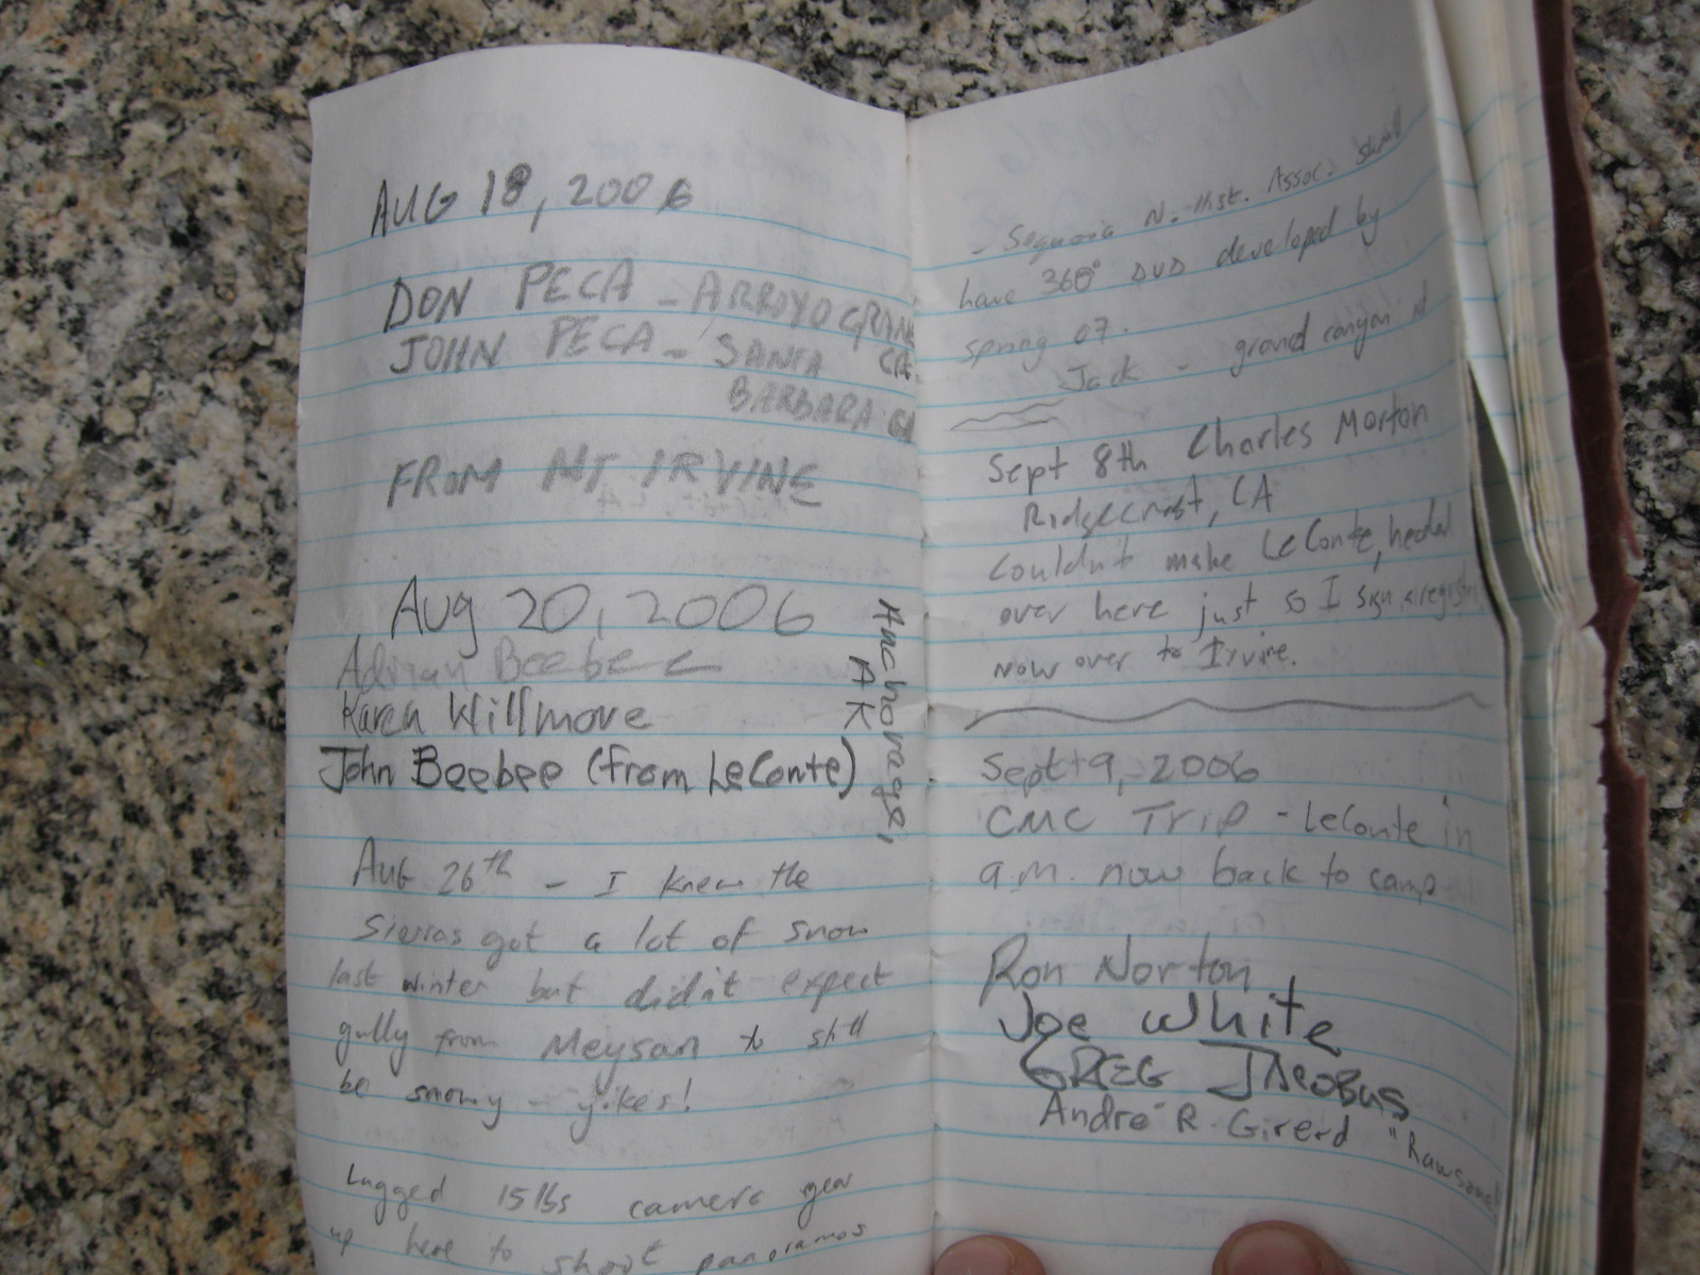 AUG 18, 2006
DON PECA - ARROYO GRAN
JOHN PECA - SANTA CA.
BARBARA CA
FROM MT IRVINE
Aug 20, 2006
Adrian Beebee
Karen Willmore
John Beebee (from LeConte)
Anchorage,
AK
Aug 26th - I knew the
Sierras got a lot of snow
last winter but didn't expect
gully from Meysan to still
be snowy - yikes!
Lugged 15 lbs camera gear
up here to shoot panoramas
- Sequoia N. Hist. Assoc. should
have 360° DVD developed by
spring 07.
Jack - grand canyon
Sept 8th Charles Morton
Ridgecrest, CA
Couldn't make LeConte, headed
over here just so I sign a register
now over to Irvine.
Sept 9, 2006
CMC Trip - LeConte in
a.m. now back to camp
Ron Norton
Joe White
GREG JACOBUS
André R. Girerd